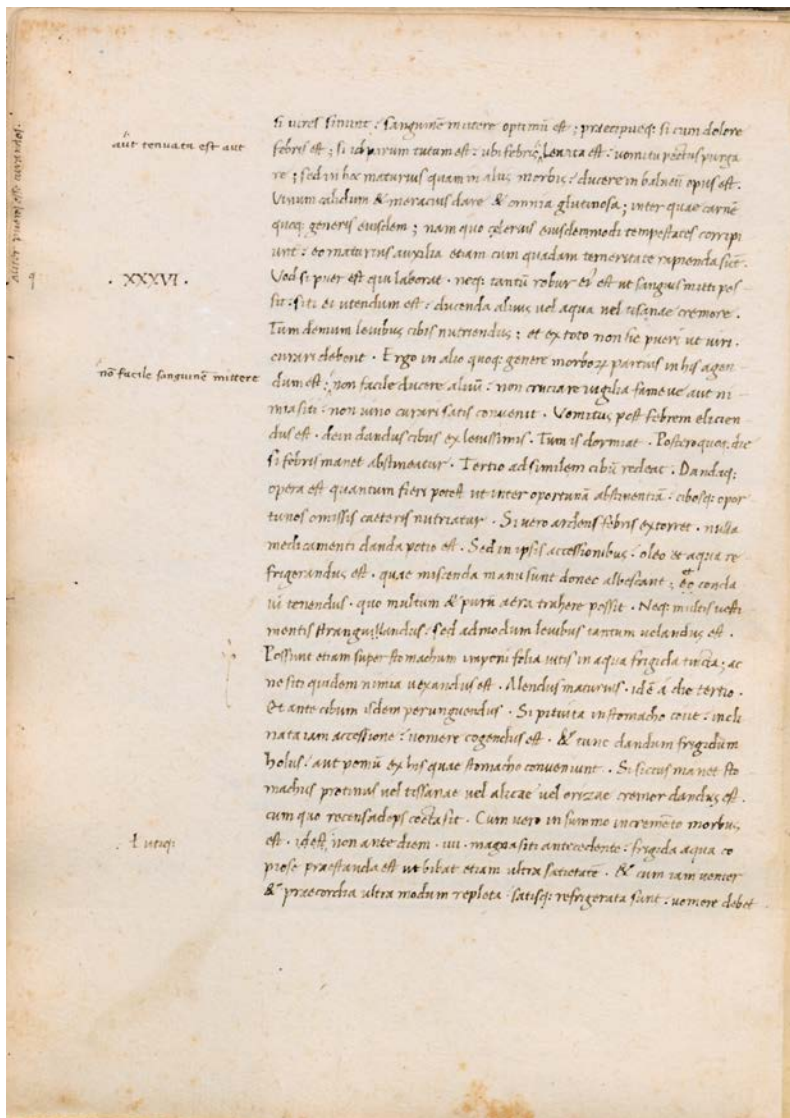 si uires sinunt : sanguinē mittere optimū est ; praecipueq: si cum dolore
aūt tenuata est aut
febris est ; si id parum tutum est : ubi febris lenita est : uomitu pectus purga
re ; sed in hoc maturius quam in aliis morbis : ducere in balneū opus est .
Vinum calidum & meracius dare & omnia glutinosa ; inter quae carnē
quoq: generis eiusdem ; nam quo celerius eiusdemmodi tempestates corripi
unt : eo maturius auxilia etiam cum quadam temeritate rapienda sūt .
. XXXVI .
Vod si puer est qui laborat . neq: tantū robur ei est ut sanguis mitti pos
sit : siti ei utendum est : ducenda aluus uel aqua uel tisanae cremore .
Tum demum leuibus cibis nutriendus ; et ex toto non sic pueri ut uiri .
curari debent . Ergo in alio quoq: genere morboꝝ partius in his agen
nō facile sanguinē mittere
dum est : non facile ducere aluū : non cruciare uigilia fame ue aut ni
mia siti : non uino curari satis conuenit . Vomitus post febrem elicien
dus est . dein dandus cibus ex leuissimis . Tum is dormiat . Posteroquoq: die
si febris manet abstineatur . Tertio ad similem cibū redeat . Dandaq:
opera est quantum fieri potest ut inter oportunā abstinentiā : cibosq: opor
tunos omissis caeteris nutriatur . Si uero ardens febris extorret . nulla
medicamenti danda potio est . Sed in ipsis accessionibus : oleo et aqua re
frigerandus est . quae miscenda manu sunt donec albescant ; eo concla
ui tenendus . quo multum & purū aera trahere possit . Neq: multis uesti
mentis strangulandus : sed admodum leuibus tantum uelandus est .
Possunt etiam super stomachum imponi folia uitis in aqua frigida tincta ; ac
ne siti quidem nimia uexandus est . Alendus maturius . idē á die tertio .
Et ante cibum isdem perunguendus . Si pituita in stomacho coit : incli
nata iam accessione : uomere cogendus est . & tunc dandum frigidum
holus : aut pomū ex his quae stomacho conueniunt . Si siccus manet sto
machus protinus uel tissanae uel alicae uel orizae cremor dandus est .
cum quo recens adeps cocta sit . Cum uero in summo incremēto morbus
ł utiq:
est . id est non ante diem . iiii . magna siti antecedente : frigida aqua co
piose praestanda est ut bibat etiam ultra satietatē . & cum iam uenter
& praecordia ultra modum repleta . satisq: refrigerata sunt : uomere debet